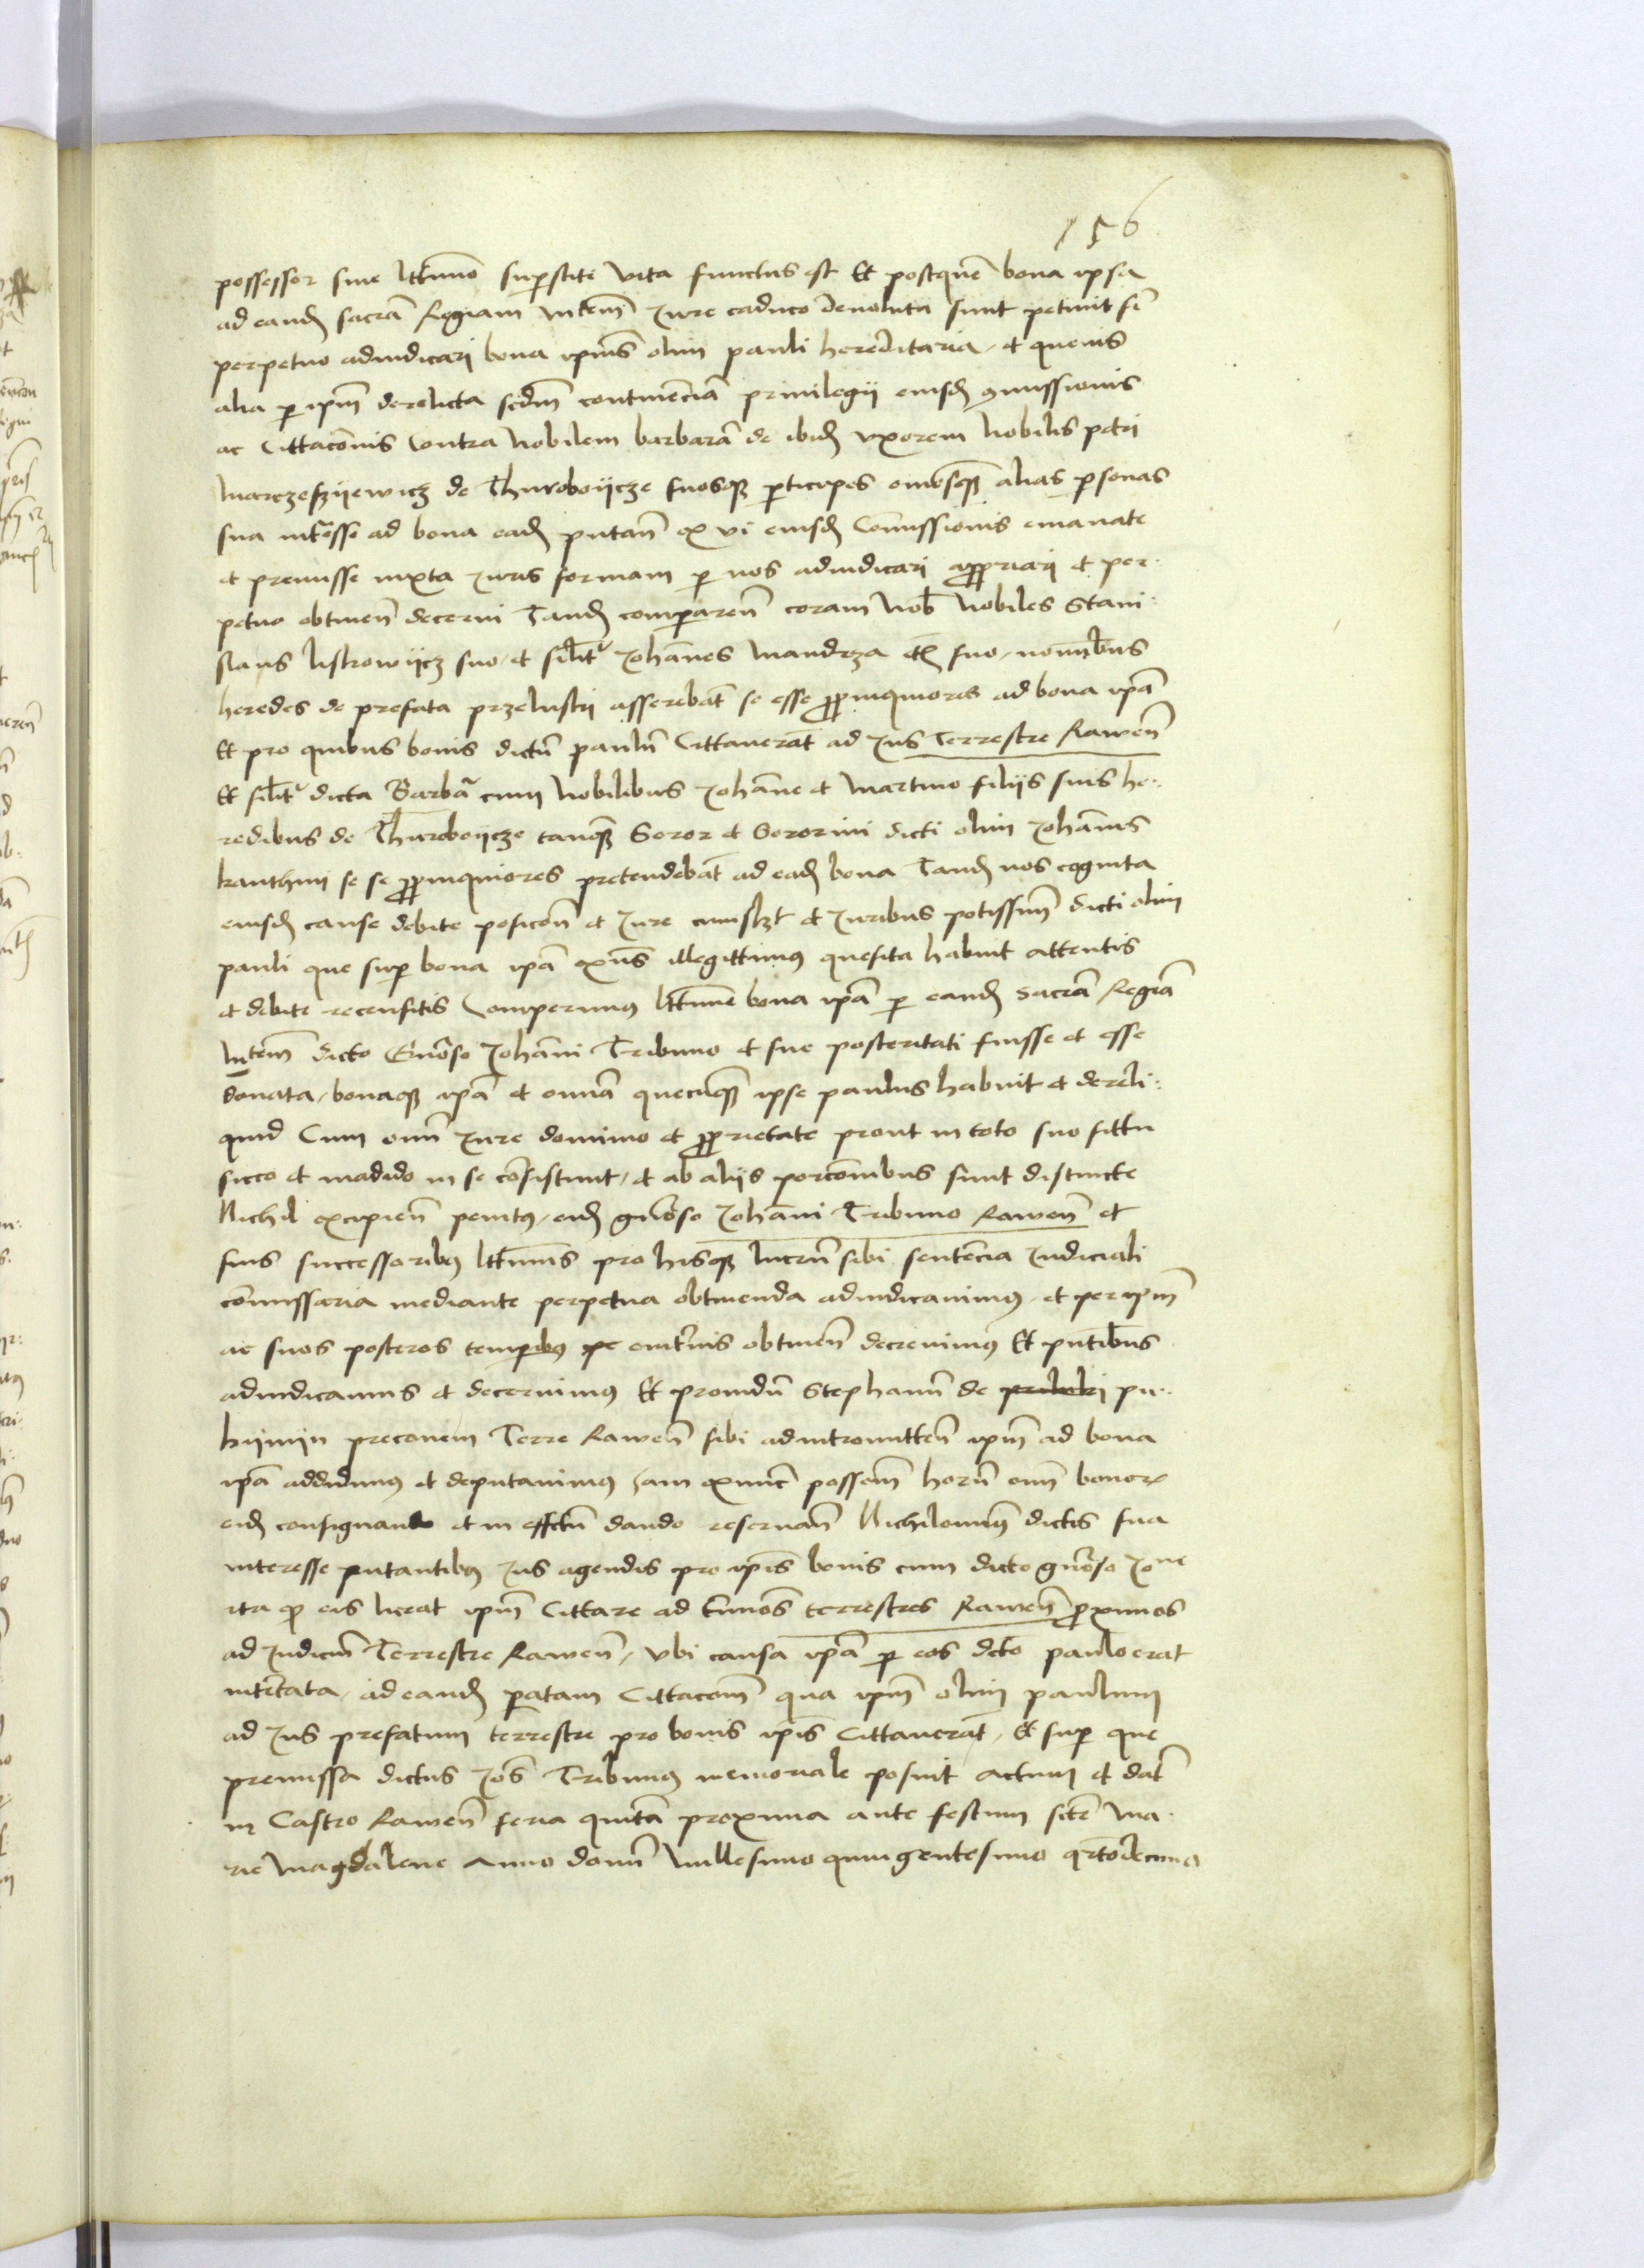 156
possessor sine lttimo superstite vita functus est Et postquem bona ipsa
ad eandem sacram Regiam mtem Jure caduco devoluta sunt petivit si
perpetuo adiudicari bona ipius olim pauli hereditaria et quevis
alia per ipm derelicta scdm continenciam privilegii eiusdem comissionis
ac Cittaconis Contra Nobilem barbaram de ibidem uxorem Nobilis petri
Marczefzÿewicz de Thuroboÿcze suosque participes omnesque alias personas
sua intresse ad bona eadem putan ex vi eiusdem Comissionis emanate
et premisse iuxta Juris formam per nos adiudicari appropriari et per
petuo obtinen decerni Tandem comparen coram Nob Nobiles Stani
slaus liskowÿcz suo et silitr Johannes Mandrza etc suo nominibus
heredes de prefata przeluski asserebant se esse propinquiores ad bona ipa
Et pro quibus bonis dictum paulum Cittaverant ad Jus Terrestre Rawen
Et silitr dicta Barbara cum Nobilibus Johanne et Martino filiis suis he
redibus de Thuroboÿcze tanquam Soror et Sororini dicti olim Johannis
kanthnii se se propinquiores pretendebant ad eadem bona Tandem nos cognita
eiusdem cause debite posicon et Jure cuiuslzt et Juribus potissim dicti olim
pauli que super bona ipa exns illegittimus quesita habuit attentis
et debite recensitis Comperimus lttime bona ipa per eandem sacram Regiam
Mtem dicto Gnroso Johanni Tribuno et sue posteritati fuisse et esse
donata bonaque ipa et omnia quecumque ipse paulus habuit et dereli
quid Cum omni Jure dominio et proprietate prout in toto suo sittu
sicco et madido in se consistunt et ab aliis porconibus sunt distincte
Nichil excipien penitus eidem gnroso Johanni Tribuno Rawen et
suis successoribus lttimis pro hisque lucrum sibi sentencia Judiciali
comissaria mediante perpetua obtinenda adiudicavimus et per ipm
ac suos posteros temporibus pe eviternis obtinen decrevimus Et pntibus
adiudicamus et decernimus Et providum Stephanum de priluki pu
kÿnin preconem Terre Rawen sibi ad intromitten ipm ad bona
ipa addidimus et deputavimus Jam exnunc possem horum omni bonorum
eidem consignando et in effectum dando reservan Nichilominus dictis sua
interesse putantibus Jus agendis pro ipis bonis cum dicto gnroso Jone
ita quod eis liceat ipm Cittare ad tminos terrestres Rawen proximos
ad Judicium Terrestre Rawen Ubi causa ipa per eos dcto paulo erat
intemtata ad eandem paratam Cittacom qua ipm olim paulum
ad Jus prefatum terrestre pro bonis ipis Cittaverant Et super que
premissa dictus Jos Tribunus memoriale posuit Actum et dat
in Castro Rawen feria quinta proxima ante festum scte Ma
rie Magdalene Anno domi Millesimo quingentesimo qrtodecimo